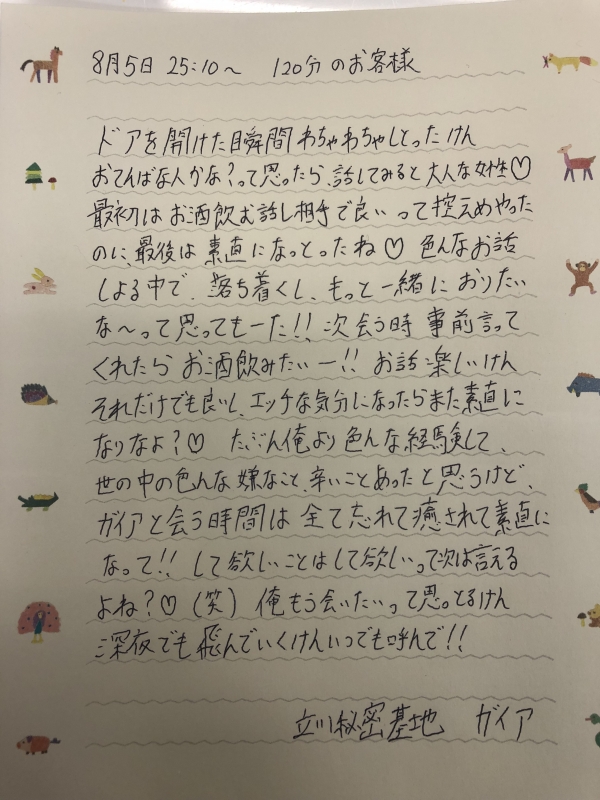 8月5日 25:10～ 120分のお客様
ドアを開けた瞬間わちゃわちゃしとったけん
おてんばな人かな?って思ったら、話してみると大人な女性♡
最初はお酒飲む話し相手で良いって控えめやった
のに、最後は素直になっとったね♡ 色んなお話
しよる中で、落ち着くし、もっと一緒におりたい
な～って思ってもーた!! 次会う時事前言って
くれたらお酒飲みたいー!! お話楽しいけん
それだけでも良いし、エッチな気分になったらまた素直に
なりなよ?♡ たぶん俺より色んな経験して、
世の中の色んな嫌なこと、辛いことあったと思うけど、
ガイアと会う時間は全て忘れて癒されて素直に
なって!! して欲しいことはして欲しいって次は言える
よね?♡(笑) 俺もう会いたいって思っとるけん
深夜でも飛んでいくけんいつでも呼んで!!
立川秘密基地 ガイア